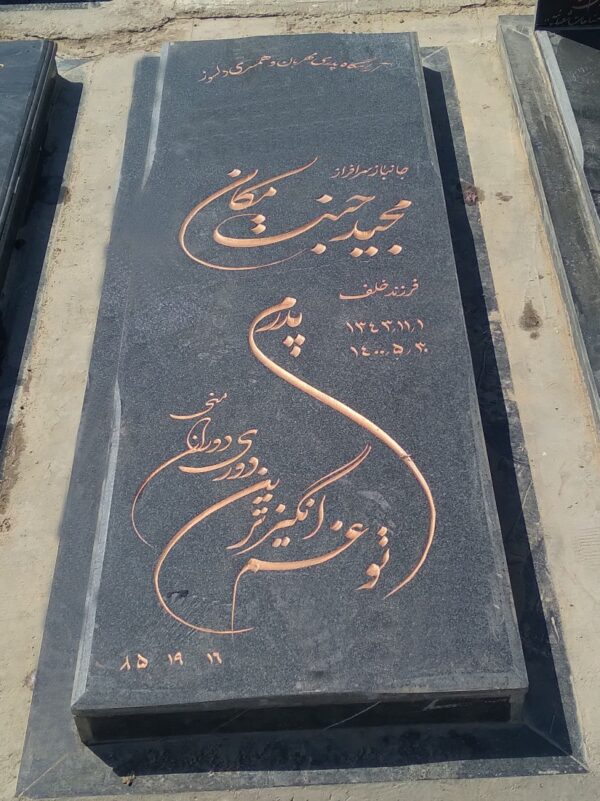 آرامگاه پدری مهربان و همسری دلسوز
جانباز سرافراز
مجید جنت مکان
فرزند خلف
۱۳۴۳/۱۱/۱
۱۴۰۰/۵/۳۰
پدرم
تو غم انگیزترین دوری دوران منی
۸۵ ۱۹ ۱۶